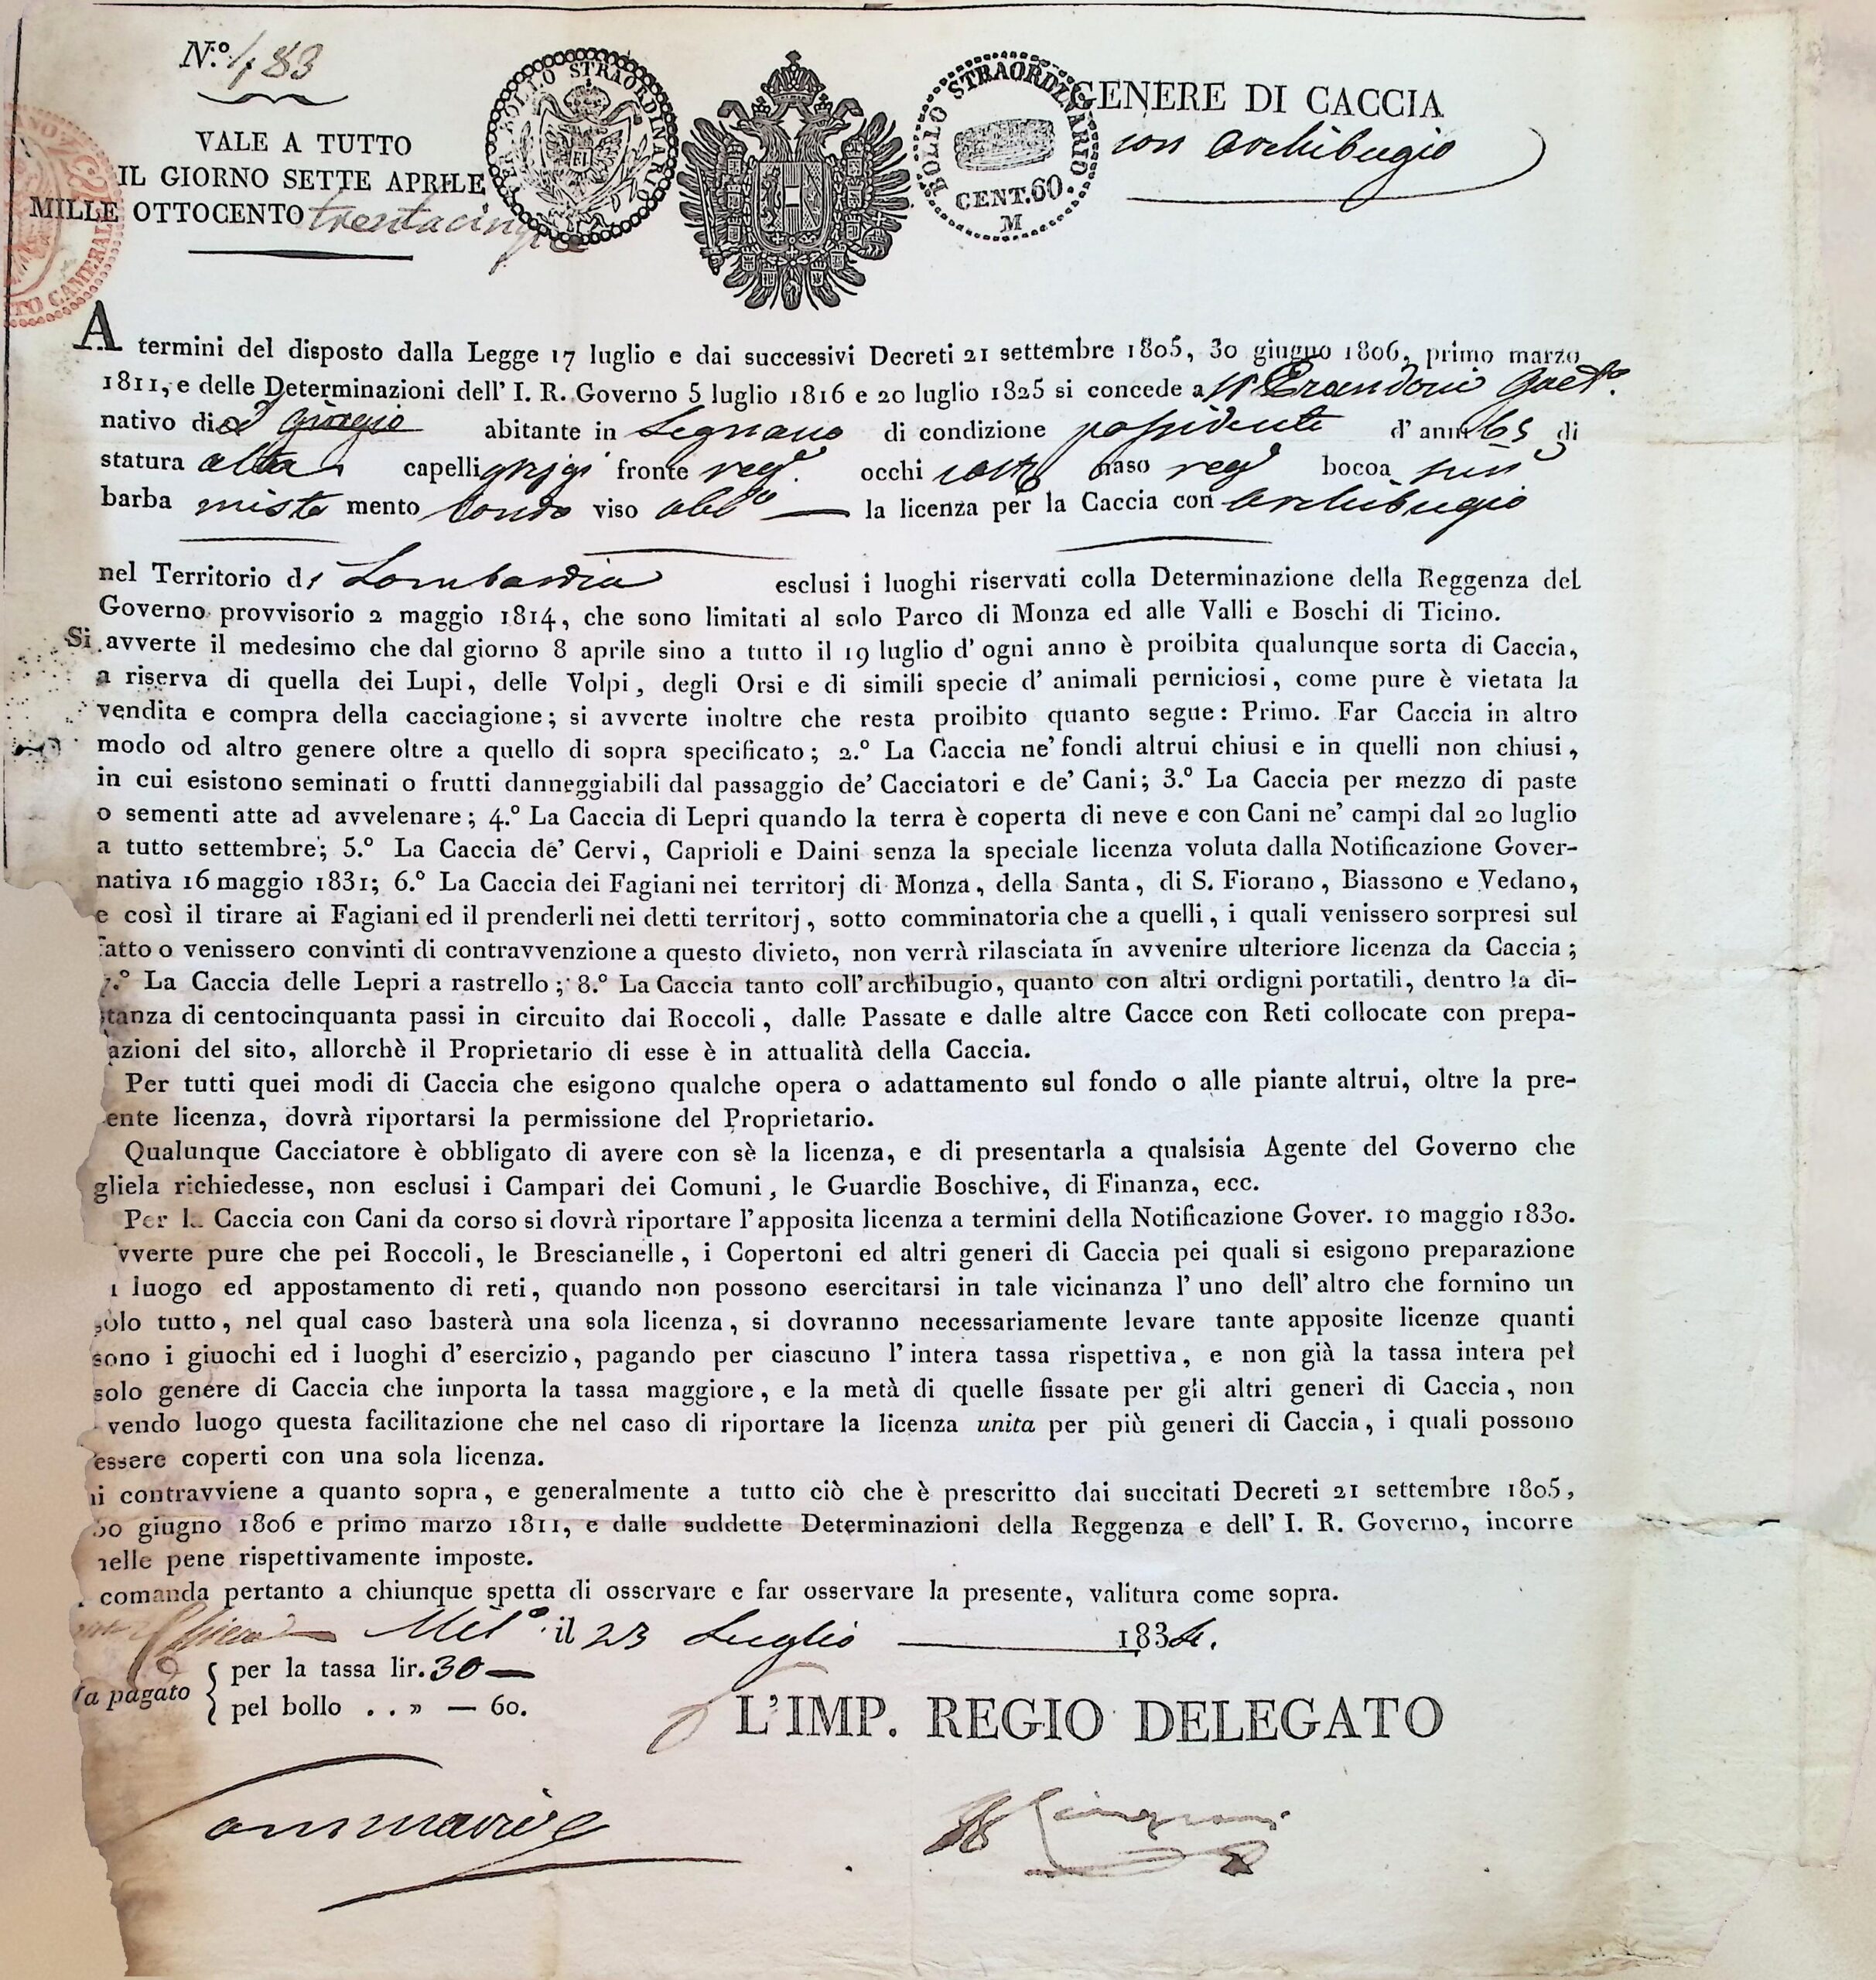 N.º 483
VALE A TUTTO
IL GIORNO SETTE APRILE
MILLE OTTOCENTO trentacinque
PER BOLLO STRAORDINARIO
BOLLO STRAORDINARIO
CENT. 60.
M
GENERE DI CACCIA
con archibugio
TO CAMERALE
A termini del disposto dalla Legge 17 luglio e dai successivi Decreti 21 settembre 1805, 30 giugno 1806, primo marzo
1811, e delle Determinazioni dell' I. R. Governo 5 luglio 1816 e 20 luglio 1825 si concede a
nativo di Giorgio abitante in Legnano di condizione possidente d' anni 65 di
statura alta capelli grigi fronte reg.e occhi naso reg.e bocca
barba mista mento tondo viso la licenza per la Caccia con archibugio
nel Territorio di Lombardia esclusi i luoghi riservati colla Determinazione della Reggenza del
Governo provvisorio 2 maggio 1814, che sono limitati al solo Parco di Monza ed alle Valli e Boschi di Ticino.
Si avverte il medesimo che dal giorno 8 aprile sino a tutto il 19 luglio d' ogni anno è proibita qualunque sorta di Caccia,
a riserva di quella dei Lupi, delle Volpi, degli Orsi e di simili specie d' animali perniciosi, come pure è vietata la
vendita e compra della cacciagione; si avverte inoltre che resta proibito quanto segue: Primo. Far Caccia in altro
modo od altro genere oltre a quello di sopra specificato; 2.º La Caccia ne' fondi altrui chiusi e in quelli non chiusi,
in cui esistono seminati o frutti danneggiabili dal passaggio de' Cacciatori e de' Cani; 3.º La Caccia per mezzo di paste
o sementi atte ad avvelenare; 4.º La Caccia di Lepri quando la terra è coperta di neve e con Cani ne' campi dal 20 luglio
a tutto settembre; 5.º La Caccia de' Cervi, Caprioli e Daini senza la speciale licenza voluta dalla Notificazione Gover-
nativa 16 maggio 1831; 6.º La Caccia dei Fagiani nei territorj di Monza, della Santa, di S. Fiorano, Biassono e Vedano,
e così il tirare ai Fagiani ed il prenderli nei detti territorj, sotto comminatoria che a quelli, i quali venissero sorpresi sul
fatto o venissero convinti di contravvenzione a questo divieto, non verrà rilasciata in avvenire ulteriore licenza da Caccia;
7.º La Caccia delle Lepri a rastrello; 8.º La Caccia tanto coll' archibugio, quanto con altri ordigni portatili, dentro la di-
stanza di centocinquanta passi in circuito dai Roccoli, dalle Passate e dalle altre Cacce con Reti collocate con prepa-
azioni del sito, allorchè il Proprietario di esse è in attualità della Caccia.
Per tutti quei modi di Caccia che esigono qualche opera o adattamento sul fondo o alle piante altrui, oltre la pre-
ente licenza, dovrà riportarsi la permissione del Proprietario.
Qualunque Cacciatore è obbligato di avere con sè la licenza, e di presentarla a qualsisia Agente del Governo che
gliela richiedesse, non esclusi i Campari dei Comuni, le Guardie Boschive, di Finanza, ecc.
Per la Caccia con Cani da corso si dovrà riportare l'apposita licenza a termini della Notificazione Gover. 10 maggio 1830.
vverte pure che pei Roccoli, le Brescianelle, i Copertoni ed altri generi di Caccia pei quali si esigono preparazione
i luogo ed appostamento di reti, quando non possono esercitarsi in tale vicinanza l' uno dell' altro che formino un
solo tutto, nel qual caso basterà una sola licenza, si dovranno necessariamente levare tante apposite licenze quanti
sono i giuochi ed i luoghi d' esercizio, pagando per ciascuno l' intera tassa rispettiva, e non già la tassa intera pel
solo genere di Caccia che importa la tassa maggiore, e la metà di quelle fissate per gli altri generi di Caccia, non
vendo luogo questa facilitazione che nel caso di riportare la licenza unita per più generi di Caccia, i quali possono
essere coperti con una sola licenza.
i contravviene a quanto sopra, e generalmente a tutto ciò che è prescritto dai succitati Decreti 21 settembre 1805,
30 giugno 1806 e primo marzo 1811, e dalle suddette Determinazioni della Reggenza e dell' I. R. Governo, incorre
nelle pene rispettivamente imposte.
comanda pertanto a chiunque spetta di osservare e far osservare la presente, valitura come sopra.
Mil.º il 23 Luglio 1834.
Ha pagato { per la tassa lir. 30 —
pel bollo . . » — 60.
L'IMP. REGIO DELEGATO